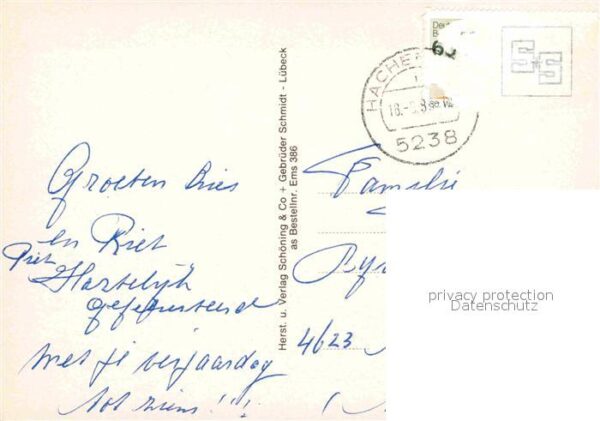 Groeten Dries
en Riet
Piet
Hartelijk
gefeliciteerd
met je verjaardag
tot ziens!!!
Herst. u. Verlag Schöning & Co + Gebrüder Schmidt - Lübeck
as Bestellnr. Ems 386
HACHE
18.-
5238
Familie
4623
privacy protection
Datenschutz